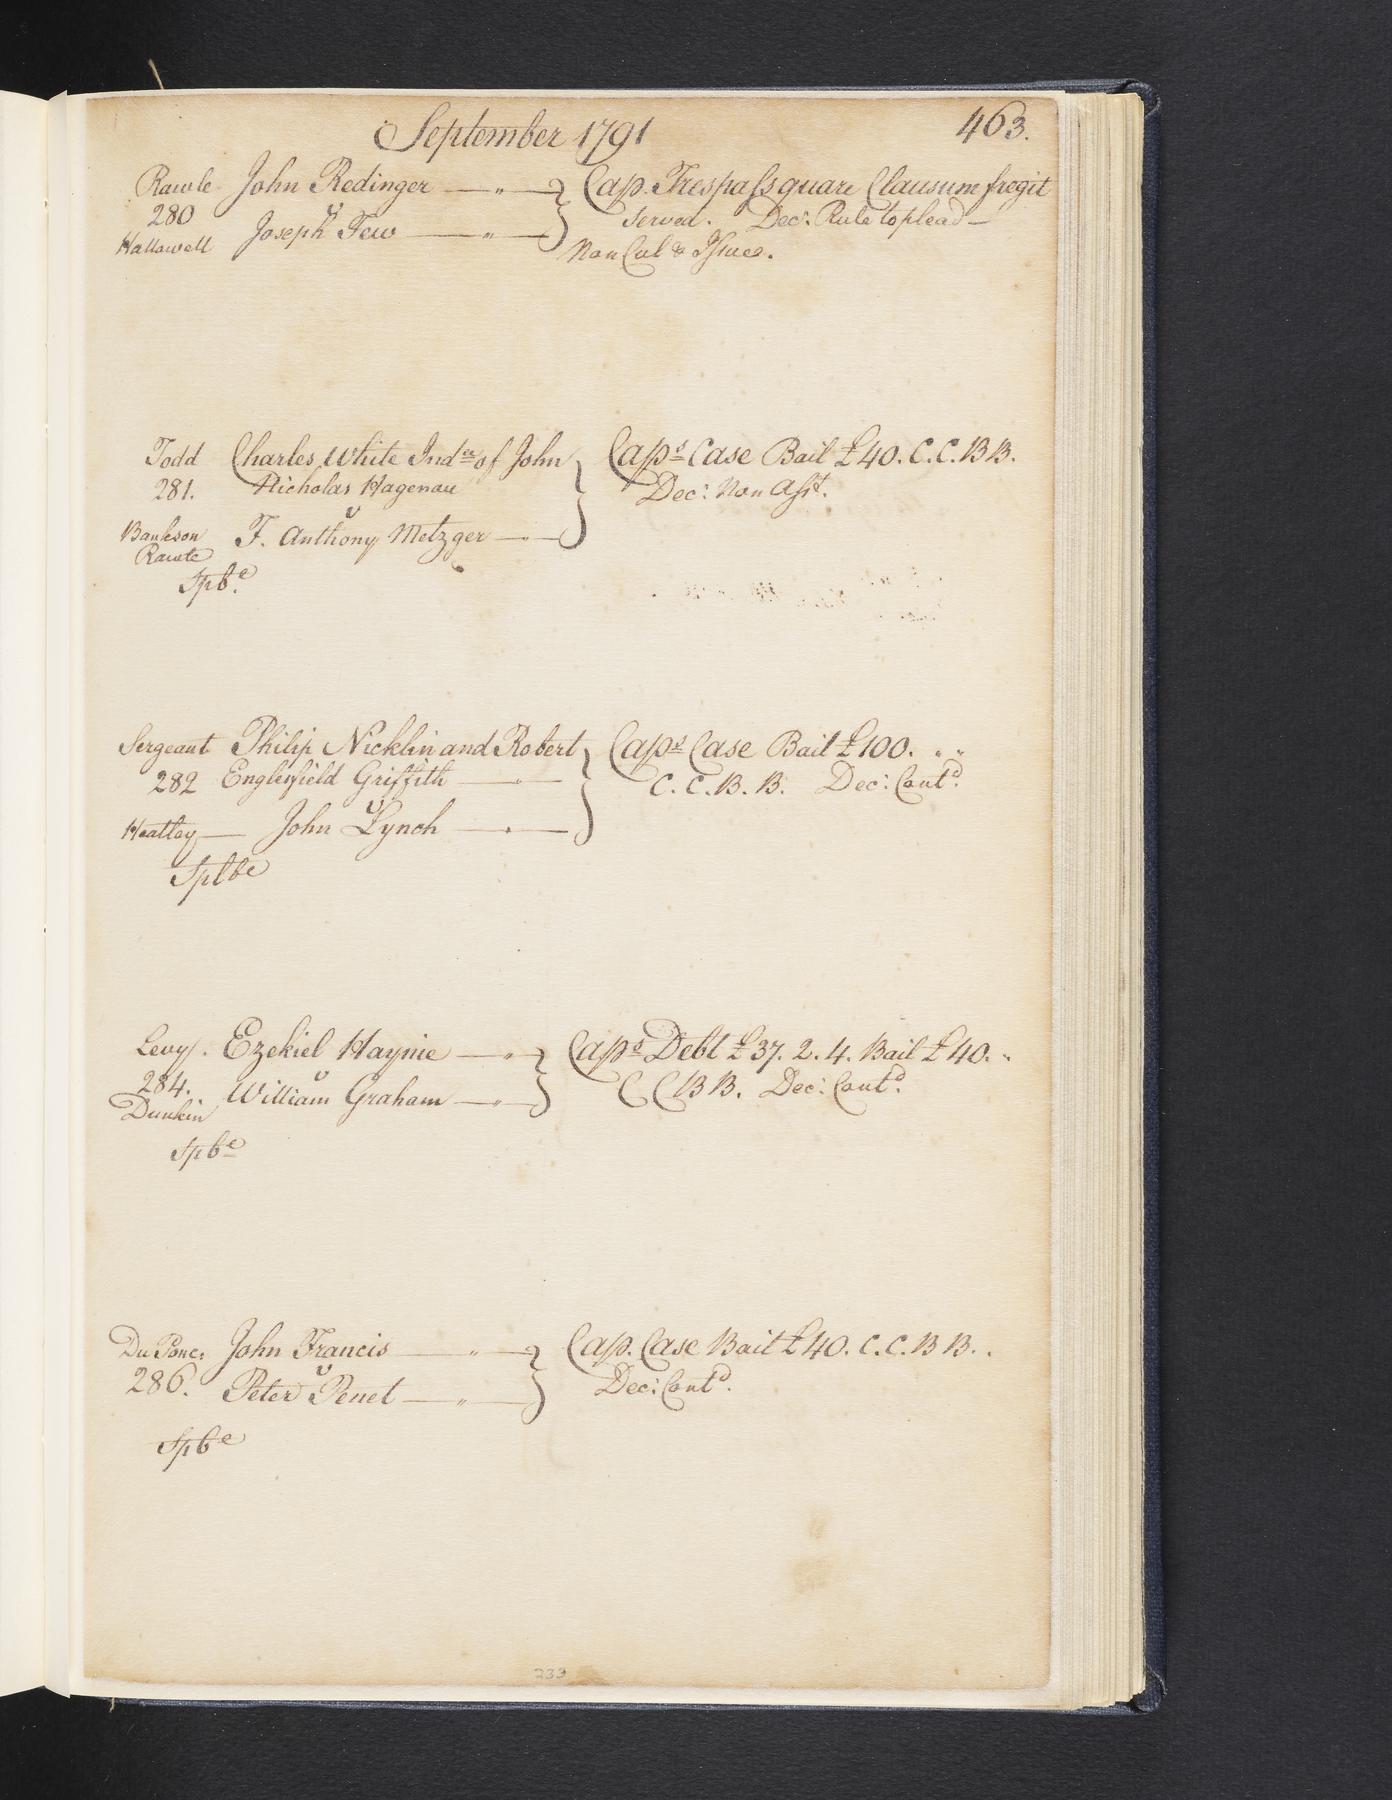 September 1791 463.
Rawle John Redinger Cap. Trespass quare Clausum fregit
280 v served. Dec: Rule to plead
Hallowell Joseph Few Non Cul & Issue.
Todd Charles White Indee of John Caps Case Bail £40. C.C.BB.
281. Nicholas Hagenau Dec: Non Asst.
v
Bankson F. Anthony Metzger
Rawle
Spbe.
Sergeant Philip Nicklin and Robert Caps Case Bail £100. " "
282 Englesfield Griffith C.C.B.B. Dec: Contd.
v
Heatley John Lynch
Splbe
Levy. Ezekiel Haynie Caps Debt £37.2.4. Bail £40. "
284. v C C BB. Dec: Contd.
Dunkin William Graham
Spbe
Du Ponc: John Francis Cap. Case Bail £40. C.C.BB..
286. v Dec: Contd.
Peter Penet
Spbe
233